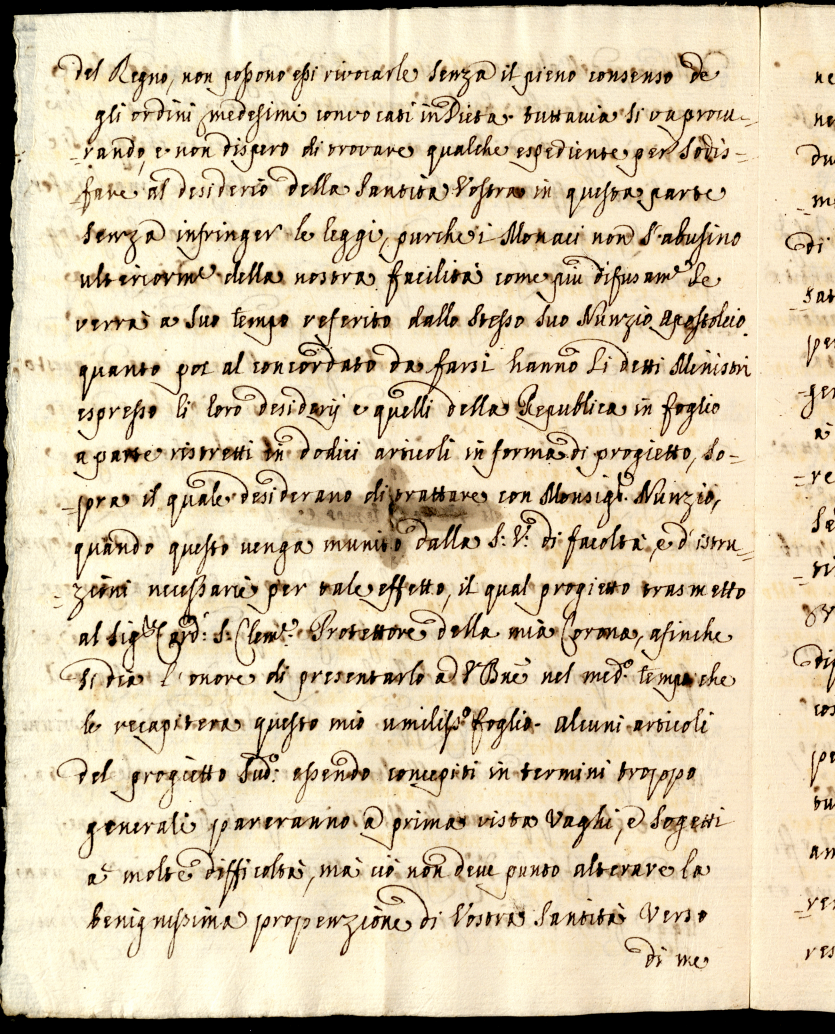 del Regno, non possono essi rivocarle senza il pieno consenso de
gli ordini medesimi convocati in Dieta. tuttavia si va procu-
-rando, e non dispero di trovare qualche espediente per sodis-
fare al desiderio della Santità Vostra in questa parte
senza infringer le leggi, purche i Monaci non s'abusino
ulteriorm:e della nostra facilità come più difusam:e se
verrà a suo tempo referito dallo stesso suo Nunzio Apostolcio.
quanto poi al concordato da farsi hanno li detti Ministri
espresso li loro desiderij e quelli della Republica in foglio
a parte ristretti in dodici articoli in forma di progietto, so-
-pra il quale desiderano di trattare con Monsig:r Nunzio,
quando questo venga munito dalla S: V: di facoltà, e d'istru-
-zioni necessarie per tale effetto, il qual progietto trasmetto
al Sig:r Card: S: Clem:te Protettore della mia Corona, afinche
si dia l'onore di presentarlo a V Bne nel med:o tempo che
le recapitera questo mio umiliss:o foglio. alcuni articoli
del progietto sud:o essendo concepiti in termini troppo
generali pareranno a prima vista vaghi, e sogetti
a molte difficoltà, ma ciò non deve punto alterare la
benignissima propenzione di Vostra Santità verso
di me